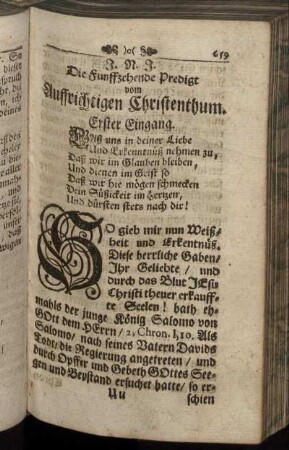 )o(
659
J. N. J.
Die Funffzehende Predigt
vom
Auffrichtigen Christenthum.
Erster Eingang.
Laß uns in deiner Liebe
Und Erkenntnüß nehmen zu,
Daß wir im Glauben bleiben,
Und dienen im Geist so
Daß wir hie mögen schmecken
Dein Süßickeit im Hertzen,
Und dürsten stets nach dir!
SO gieb mir nun Weiß-
heit und Erkentnüß.
Diese herrliche Gaben/
Ihr Geliebte / und
durch das Blut JEsu
Christi theuer erkauff-
te Seelen! bath eh-
mahls der junge König Salomo von
GOtt dem HErrn / 2. Chron. I, 10. Als
Salomo, nach seines Vatern Davids
Todt/ die Regierung angetreten/ und
durch Opffer und Gebeth GOttes See-
gen und Beystand ersuchet hatte/ so er-
Uu
schien